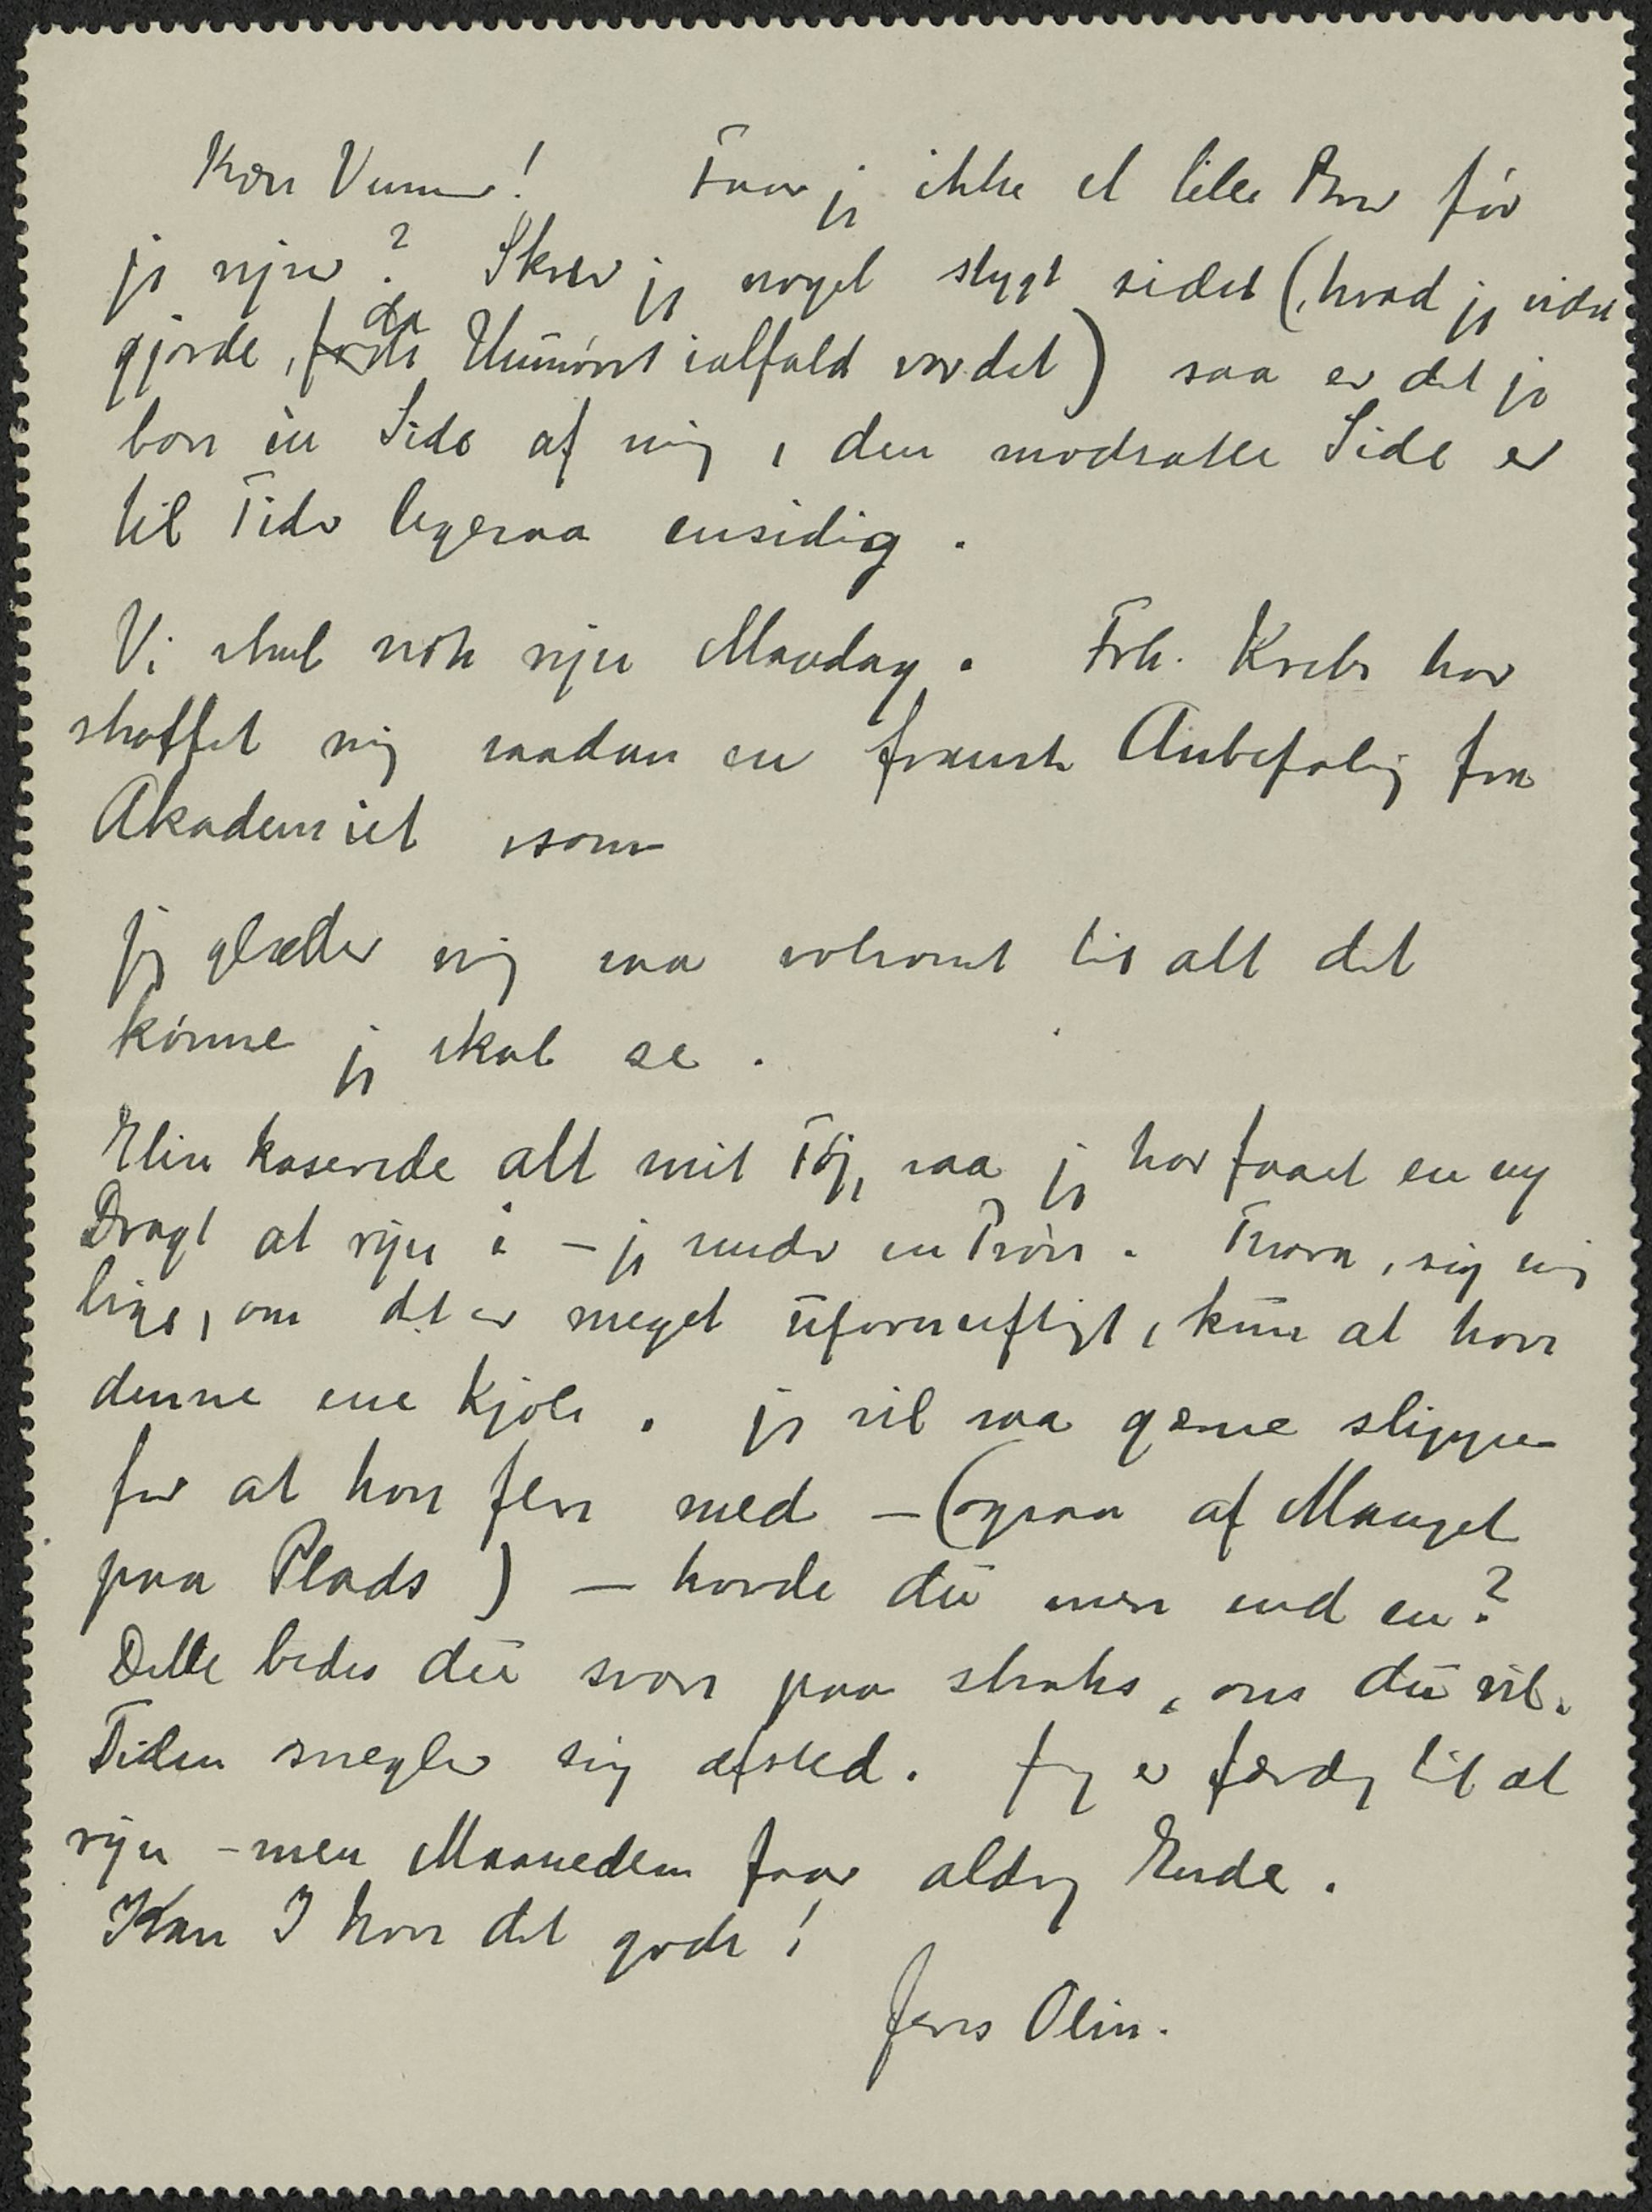 Kære Venner! Faar jeg ikke et lille Brev før
jeg rejser? Skrev jeg noget stygt sidst (, hvad jeg vidst
gjorde, da Humøret ialfald var det) saa er det jo
bare én Side af mig, den modsatte Side er
til Tider ligesaa ensidig.
Vi skal nok rejse Mandag. Frk. Krebs har
skaffet mig saadan en fransk Anbefaling fra
Akademiet som
jeg glæder mig saa voldsomt til alt det
kønne jeg skal se.
Elin kaserede alt mit Tøj, saa jeg har faaet en ny
Dragt at rejse i – jeg sender en Prøve. Thora, sig mig
lige, om det er meget ufornuftigt, kun at have
denne ene Kjole. jeg vil saa gerne slippe
for at have flere med – (ogsaa af Mangel
paa Plads) – havde du mere end en?
Dette bedes du svare paa straks, om du vil.
Tiden snegler sig afsted. Jeg er færdig til at
rejse – men Maaneden faar aldrig Ende.
Kan I have det godt!
Jeres Olin.